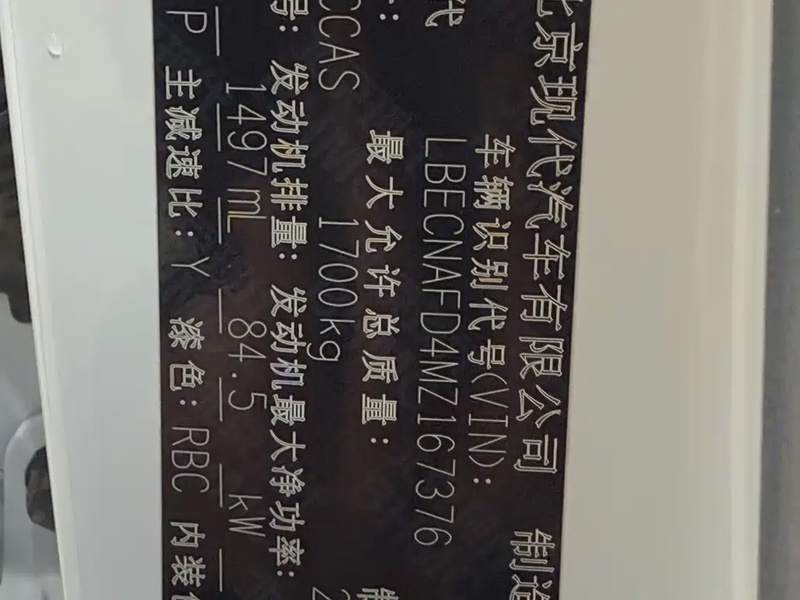 北京现代汽车有限公司 制造
代 车辆识别代号(VIN):
LBECNAFD4MZ167376
最大允许总质量: 制
CCAS 1700kg 2
号: 发动机排量: 发动机最大净功率:
1497mL 84.5 kW
P 主减速比: Y 漆色: RBC 内装